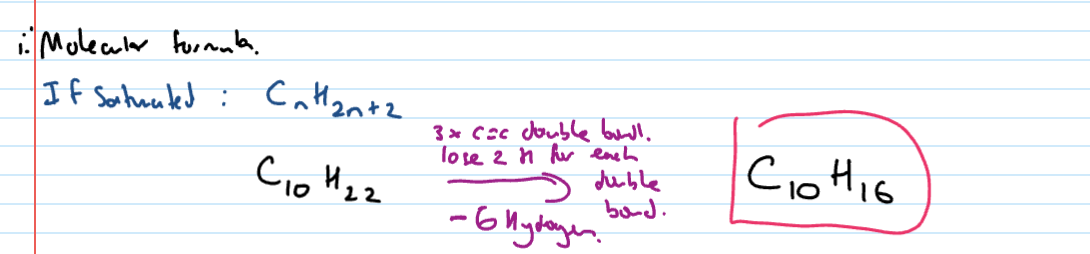 i. Molecular formula.
If Saturated : CnH2n+2
3x C=C double bond.
lose 2 H for each
double
bond.
C10 H22
- 6 Hydrogen.
C10 H16